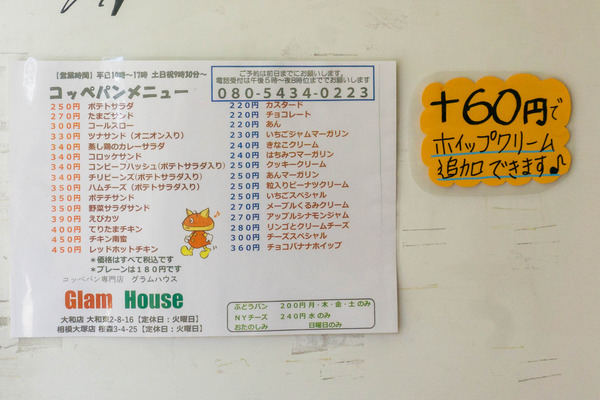 【営業時間】平日10時～17時 土日祝9時30分～
ご予約は前日までにお願いします。
電話受付は午後5時～夜8時位まででお願いします
080-5434-0223
コッペパンメニュー
250円 ポテトサラダ
270円 たまごサンド
300円 コールスロー
330円 ツナサンド（オニオン入り）
340円 蒸し鶏のカレーサラダ
340円 コロッケサンド
340円 コンビーフハッシュ(ポテトサラダ入り)
340円 チリビーンズ(ポテトサラダ入り)
350円 ハムチーズ（ポテトサラダ入り）
350円 ポテチサンド
350円 野菜サラダサンド
390円 えびカツ
400円 てりたまチキン
450円 チキン南蛮
450円 レッドホットチキン
＊価格はすべて税込です
＊プレーンは180円です
220円 カスタード
220円 チョコレート
220円 あん
230円 いちごジャムマーガリン
240円 きなこクリーム
240円 はちみつマーガリン
250円 クッキークリーム
250円 あんマーガリン
250円 粒入りピーナツクリーム
250円 いちごスペシャル
270円 メープルくるみクリーム
270円 アップルシナモンジャム
280円 リンゴとクリームチーズ
300円 チーズスペシャル
360円 チョコバナナホイップ
コッペパン専門店 グラムハウス
Glam House
大和店 大和東2-8-16【定休日：火曜日】
相模大塚店 桜森3-4-25【定休日：火曜日】
ぶどうパン 200円 月・木・金・土 のみ
NYチーズ 240円 水 のみ
おたのしみ 日曜日のみ
+60円で
ホイップクリーム
追加できます♪